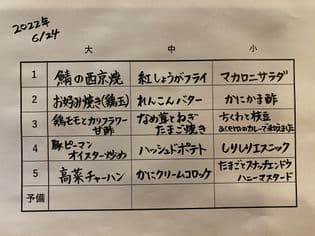 2022年
6/24
大 中 小
1 鯖の西京焼 紅しょうがフライ マカロニサラダ
2 お好み焼き(鶏玉) れんこんバター かにかま酢
3 鶏モモとカリフラワー なめ茸とねぎ ちくわと枝豆
甘酢 たまご焼き のカレーで
4 豚ピーマン ハッシュドポテト しりしりエスニック
オイスター炒め
5 高菜チャーハン かにクリームコロッケ たまごとスナップエンドウ
ハニーマスタード
予備